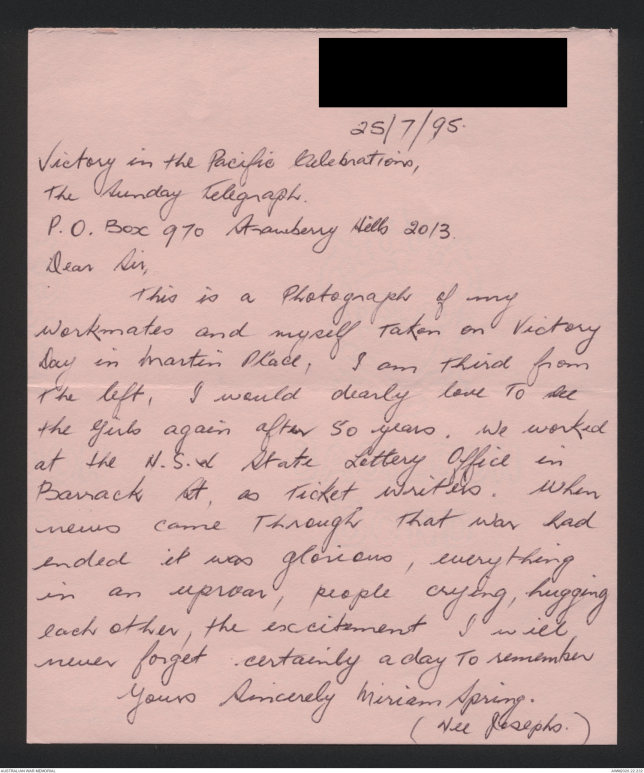 25/7/95.
Victory in the Pacific Celebrations,
The Sunday Telegraph.
P.O. Box 970 Strawberry Hills 2013.
Dear Sir,
This is a Photograph of my
workmates and myself taken on Victory
Day in Martin Place, I am third from
the left, I would dearly love to see
the girls again after 50 years. We worked
at the N.S.W State Lottery Office in
Barrack St, as Ticket writers. When
news came through that war had
ended it was glorious, everything
in an uproar, people crying, hugging
each other, the excitement I will
never forget certainly a day to remember
Yours Sincerely Miriam Spring.
(Nee Josephs.)
AUSTRALIAN WAR MEMORIAL